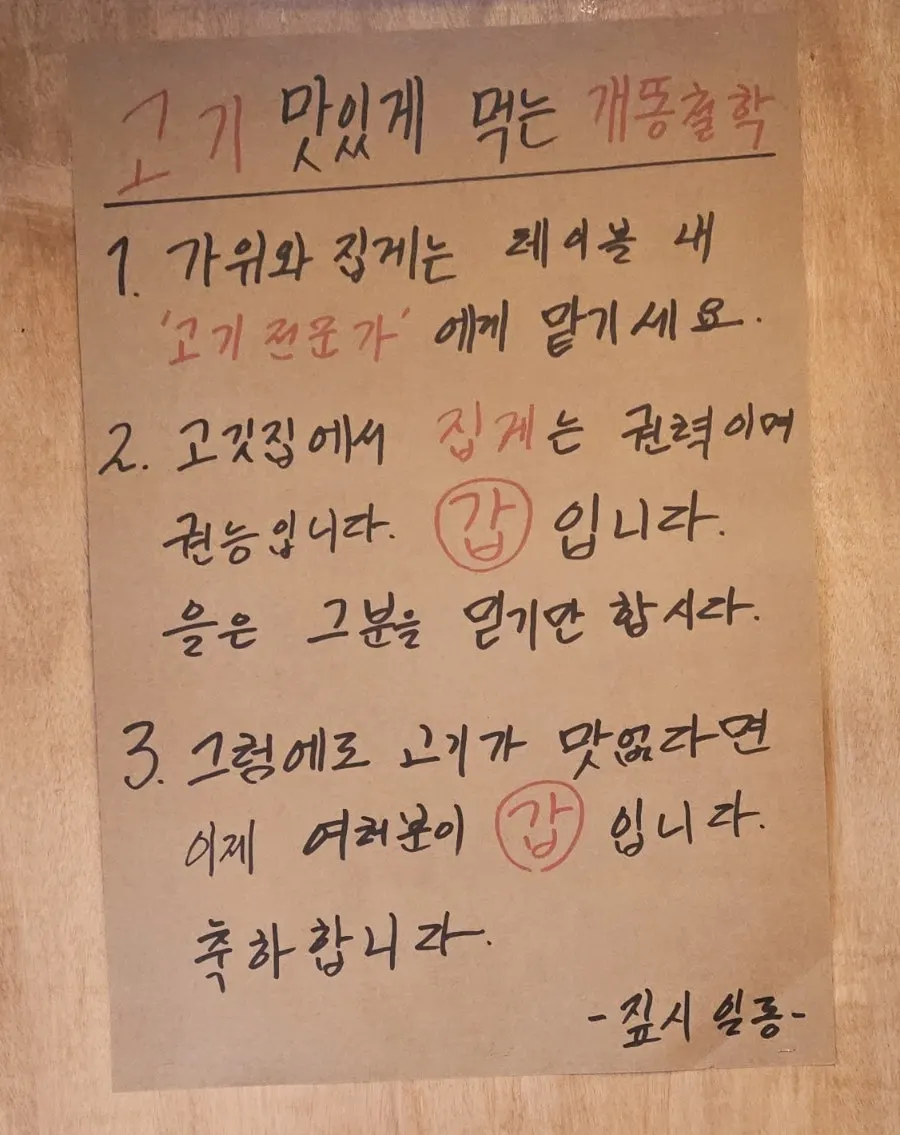 고기 맛있게 먹는 개똥철학
1. 가위와 집게는 테이블 내
'고기 전문가' 에게 맡기세요.
2. 고깃집에서 집게는 권력이며
권능입니다. 갑 입니다.
을은 그분을 믿기만 합시다.
3. 그럼에도 고기가 맛없다면
이제 여러분이 갑 입니다.
축하합니다.
-짚시 일동-